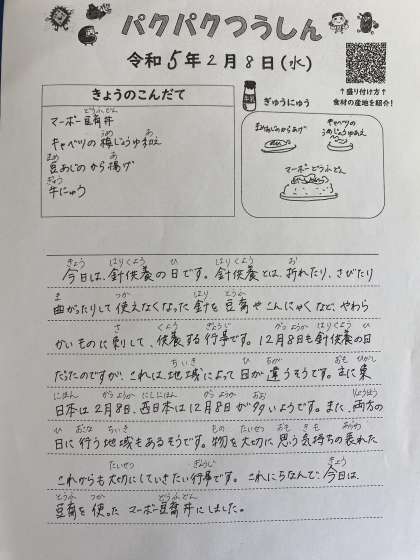 パクパクつうしん
令和5年2月8日(水)
↑盛り付け方↑
食材の産地を紹介!
きょうのこんだて
マーボー豆腐丼
キャベツの梅じょうゆ和え
豆あじのから揚げ
牛にゅう
牛乳
ぎゅうにゅう
まめあじのからあげ
キャベツの
うめじょうゆあえ
マーボーどうふどん
今日は、針供養の日です。針供養とは、折れたり、さびたり
曲がったりして使えなくなった針を豆腐やこんにゃくなど、やわら
かいものに刺して、供養する行事です。12月8日も針供養の日
だったのですが、これは地域によって日が違うそうです。主に東
日本は2月8日、西日本は12月8日が多いようです。また、両方の
日に行う地域もあるそうです。物を大切に思う気持ちの表れた
これからも大切にしていきたい行事です。これにちなんで、今日は、
豆腐を使ったマーボー豆腐丼にしました。